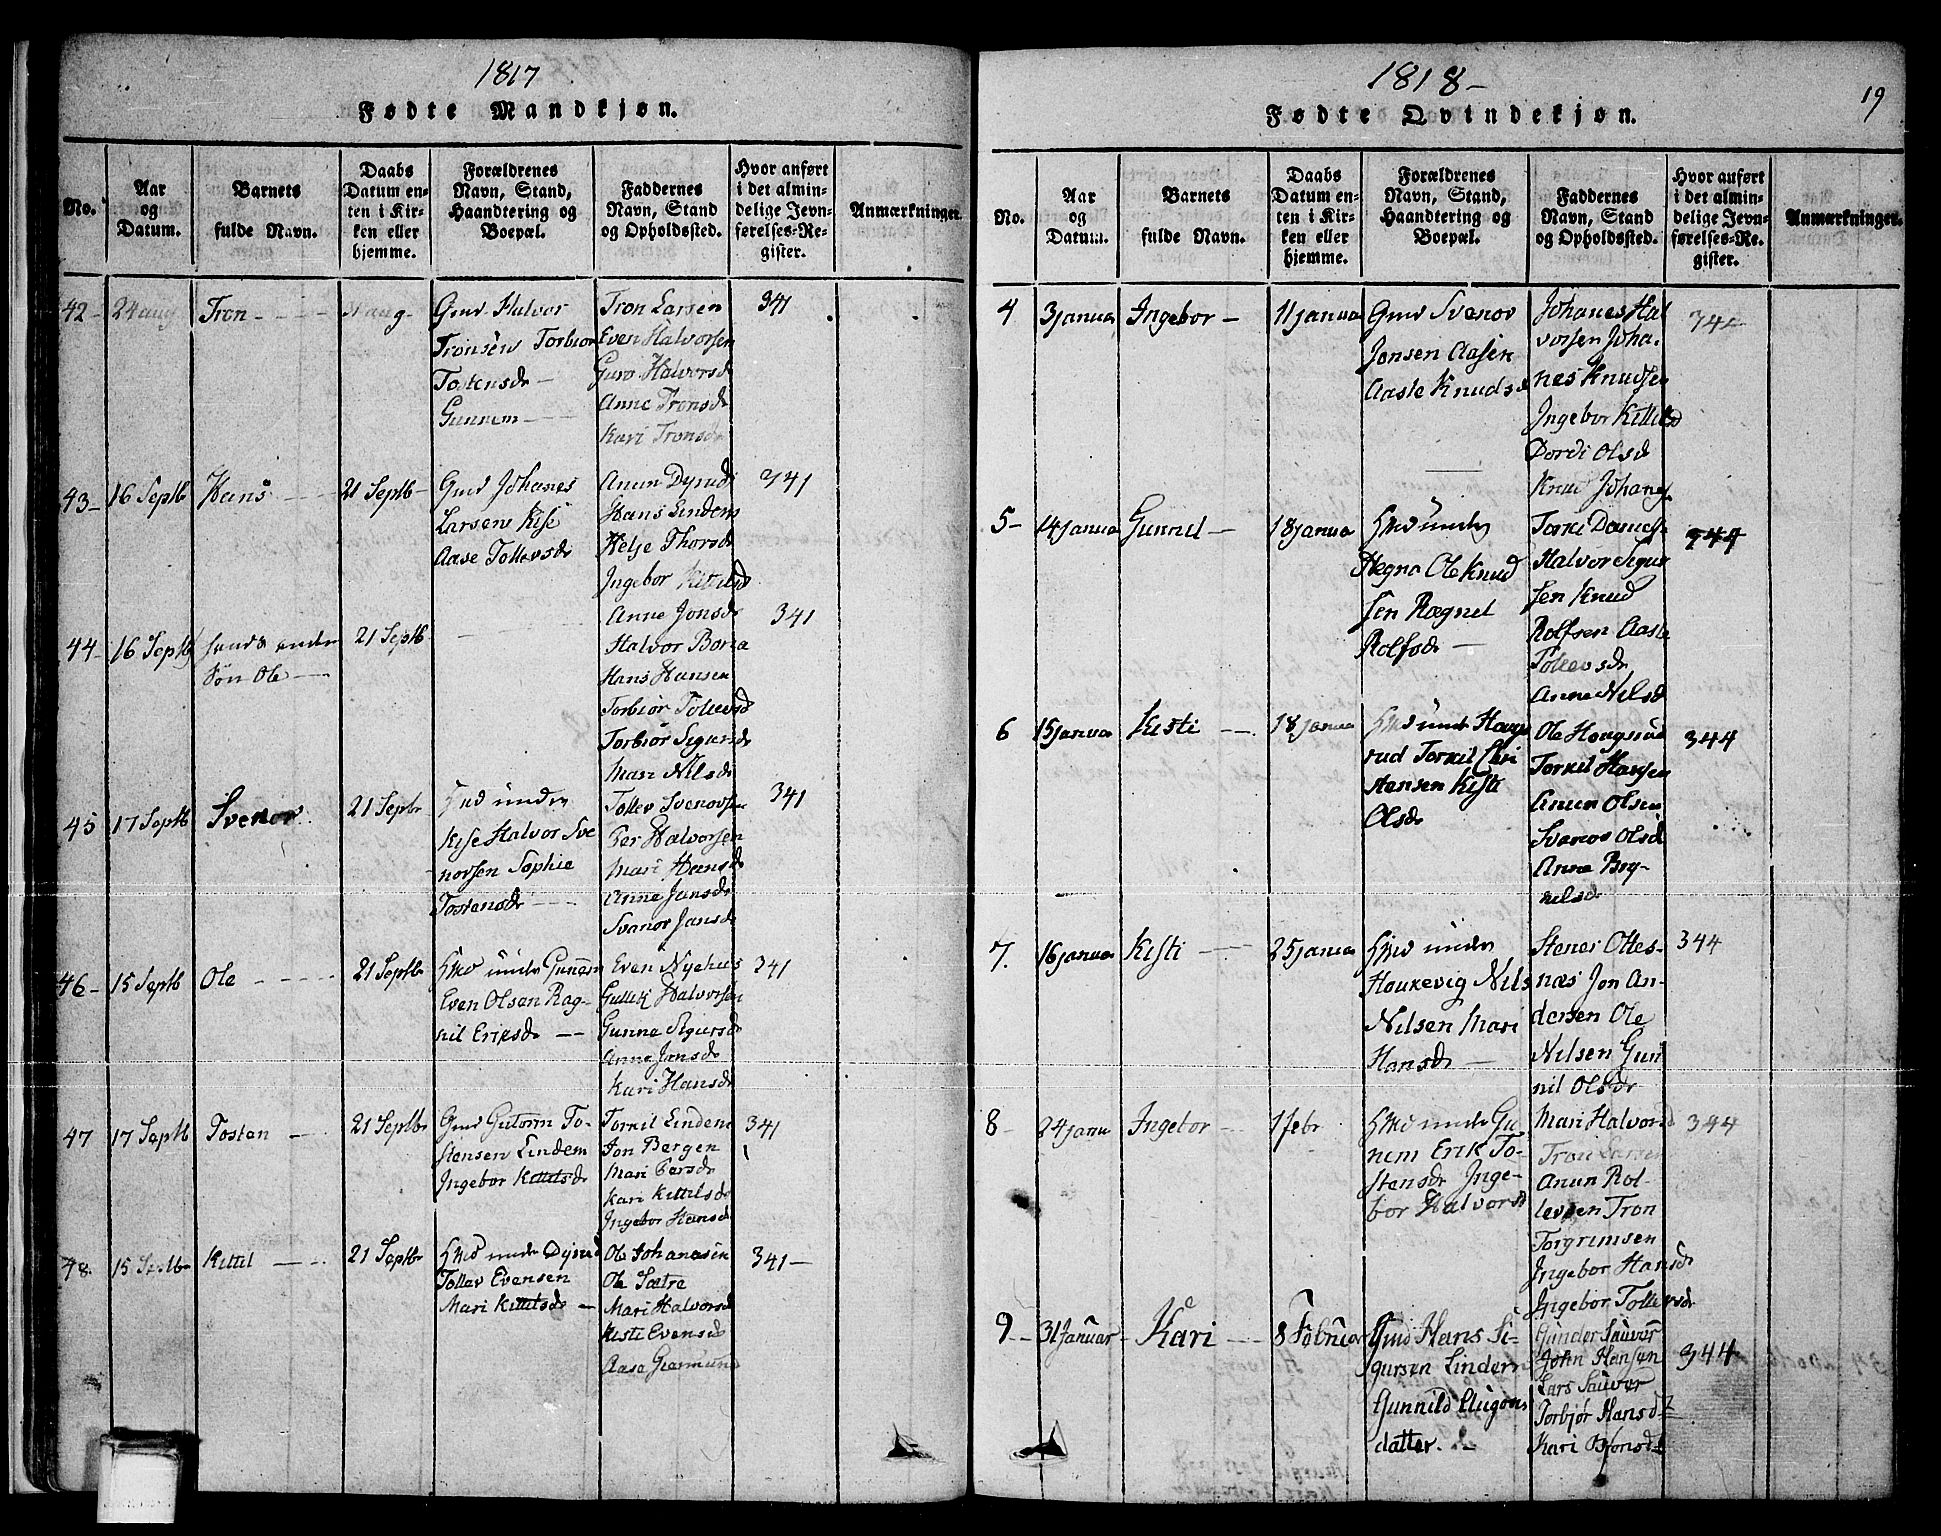 1817
Fødte Mandkjøn.
No.
Aar
og
Datum.
Barnets
fulde Navn.
Daabs
Datum en-
ten i Kir-
ken eller
hjemme.
Forældrenes
Navn, Stand,
Haandtering og
Boepæl.
Faddernes
Navn, Stand
og Opholdssted.
Hvor anført
i det almin-
delige Jevn-
førelses-Re-
gister.
Anmærkninger.
42 - 24 aug
Tron
aug -
Gmd Halvor
Tronsen Torbior
Tostensdr -
Gunnem
Tron Larsen
Even Halvorsen
Guro Halvorsd
Anne Tronsdr
Kari Tronsdr
341
43 - 16 Septb
Hans
21 Septb -
Gmd Johanes
Larsens Kise
Aase Tollevsdr
Anun Dyrud
Hans Lindem
Helje Thorsdr
Ingebor Kittilsd
Anne Jonsdr
341
44 - 16 Septb
Søn Ole
21 Septb
Halvor Borra
Hans Hansen
Torbiør Tollevsd
Torbiør Sigursdr
Mari Nilsdr
341
45 17 Septb
Svenor
21 Septbr
Hmd under
Kise Halvor Sve
norsen Sophie
Tostensdr
Tollev Svenorsen
Per Halvorsen
Mari Hansdr
Anne Jansdr
Svanor Jansdr
341
46 - 15 Septb
Ole
21 Septbr
Hmd under Gunem
Even Olsen Rag-
nil Eriksdr
Even Nyehus
Gullik Halvorsen
Gunne Sigursdr
Anne Jansdr
Kari Hansdr
341
47 17 Septb
Tosten
21 Septbr
Gmd Gutorm To-
stensen Lindem
Ingebor Kittilsdr
Torkil Lindem
Jon Bergen
Mari Persdr
Kari Kittilsdr
Ingebor Hansdr
341
48. 15 Septbr
Kittil
21 Septbr
Hmd under Dyrud
Tollev Evensen
Mari Kittilsdr -
Ole Johanesen
Ole Sætre
Mari Halvorsd
Kisti Evensdr
Aase Giermund
341 -
1818 -
19
Fødte Qvindekjøn.
No.
Aar
og
Datum.
Barnets
fulde Navn.
Daabs
Datum en-
ten i Kir-
ken eller
hjemme.
Forældrenes
Navn, Stand,
Haandtering og
Boepæl.
Faddernes
Navn, Stand
og Opholdssted.
Hvor anført
i det almin-
delige Jevn-
førelses-Re-
gister.
Anmærkninger.
4 3 janua
Ingebor -
11 janua
Gmd Svenor
Jonsen Aasen
Aaste Knudsd
Johanes Hal
vorsen Joha-
nes Knudsen
Ingebor Kittilsd
Dordi Olsdr
Knud Johanes
5 - 14 janua
Gunnil -
18 janua
Hmd under
Hegna Ole Knud
sen Rægnel
Rolfsdr
Halvor Sigur
sen Knud
Rolfsen Aaste
Tollevsdr
Anne Nilsdr
344
6 15 janua
Kisti
18 janua
Hmd under Haugs
rud Torkil Chri
stensen Kisti
Olsdr
Ole Haugsrud
Torkil Hansen
Anun Olsen
Svanor Olsdr
Anne Bry-
nilsdr
344
7. 16 janua
Kisti
25 janua
Hmd under
Houkevig Nils
Nilsen Mari
Hansdr
Stener Ottes-
næs Jon An-
dersen Ole
Nilsen Gun
nil Olsdr
344
8 - 24 janu
Ingebor
1 febr
Hmd under Gu
nem Erik To-
stensdr Inge-
bor Halvorsd
Mari Halvorsd
Tron Larsen
Anun Rol-
levsen Tron
Torgrimsen
Ingebor Hansdr
Ingebor Tollevsdr
344
9 - 31 Januar
Kari
8 Februar
Gmd Hans Si-
gursen Lindem
Gunnild Augons
datter.
Gunder Sauvor
John Hansen
Lars Sauvor
Torbjør Hansdr
Kari Bjonsdr
344